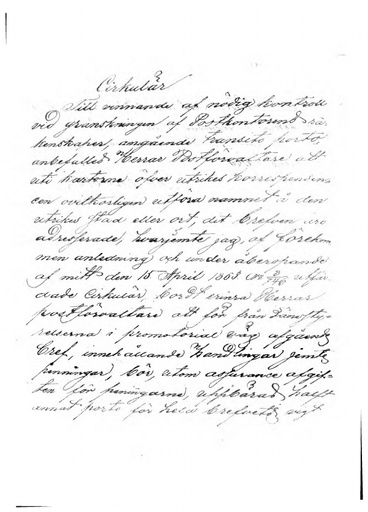 Cirkulär
Till vinnande af nödig kontroll
vid granskningen af Postkontorens rä-
kenskaper, angående transito porto,
anbefalles Herrar Postförvaltare att
uti kartorne öfver utrikes korresponden
cen ovilkorligen utföra namnet å den
utrikes stad eller ort, dit brefven äro
adresserade, hvarjemte jag, af förekom
men anledning och under åberopande
af mitt den 15 April 1868 utfär
dade Cirkulär, bordt erinra Herrar
postförvaltare att för från Länssty-
relserna i promotorial väg afgående
bref, innehållande handlingar jemte
penningar, bör, utom assurance afgif-
ten för penningarne, uppbäras halft
annat porto för hela brefvets vigt